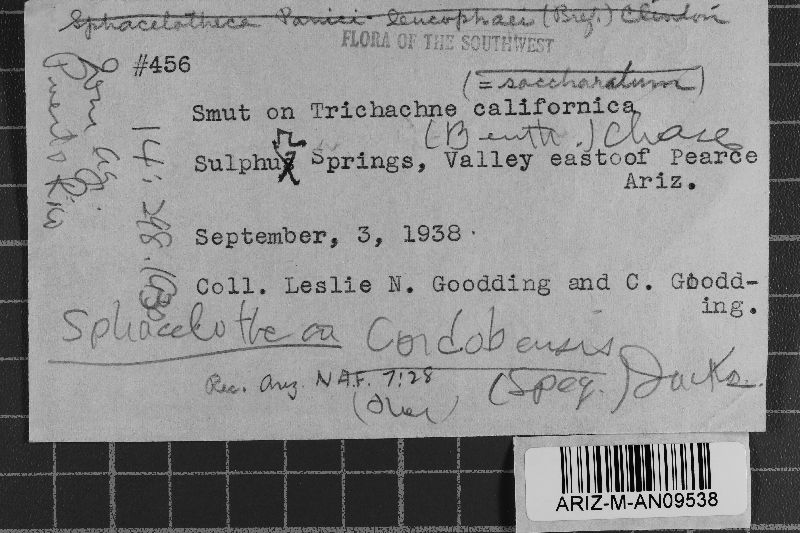 Sphacelotheca Panici-leucophaei (Bref.) Clinton
FLORA OF THE SOUTHWEST
#456
(= saccharatum)
Smut on Trichachne californica
(Benth.) Chase
Sulphur Springs, Valley eastoof Pearce
Ariz.
September, 3, 1938.
Coll. Leslie N. Goodding and C. Goodd-
ing.
Sphacelotheca Cordobensis
(Speg.) Jacks.
Rec. Ariz. NAF. 7:28
(Over)
Puerto Rico
14: 298. 1930
ARIZ-M-AN09538